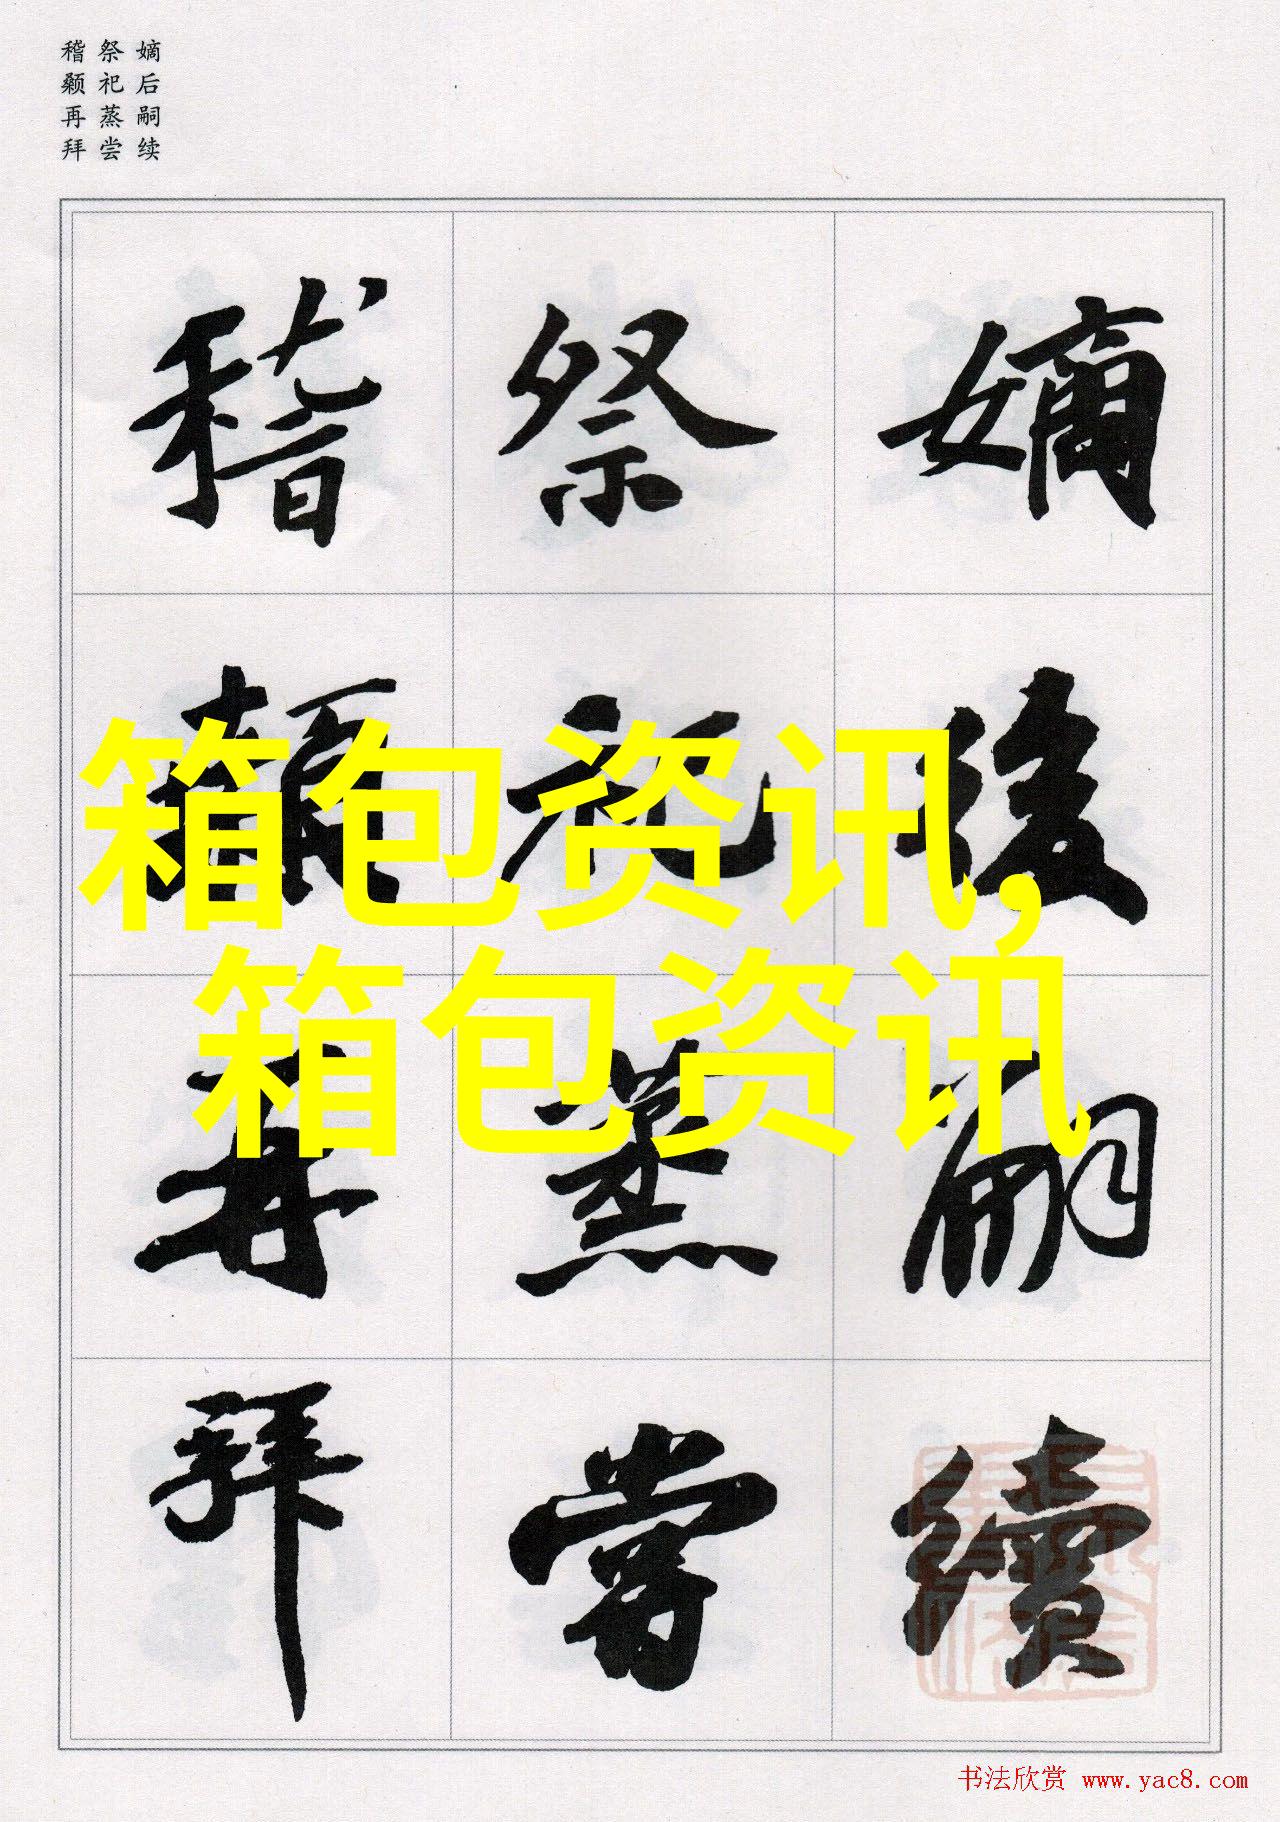 嫡后嗣续
祭祀蒸尝
稽颡再拜
嫡後嗣續
祭祀蒸嘗
稽顙再拜
箱包资讯,
箱包资讯
书法欣赏 www.yac8.com